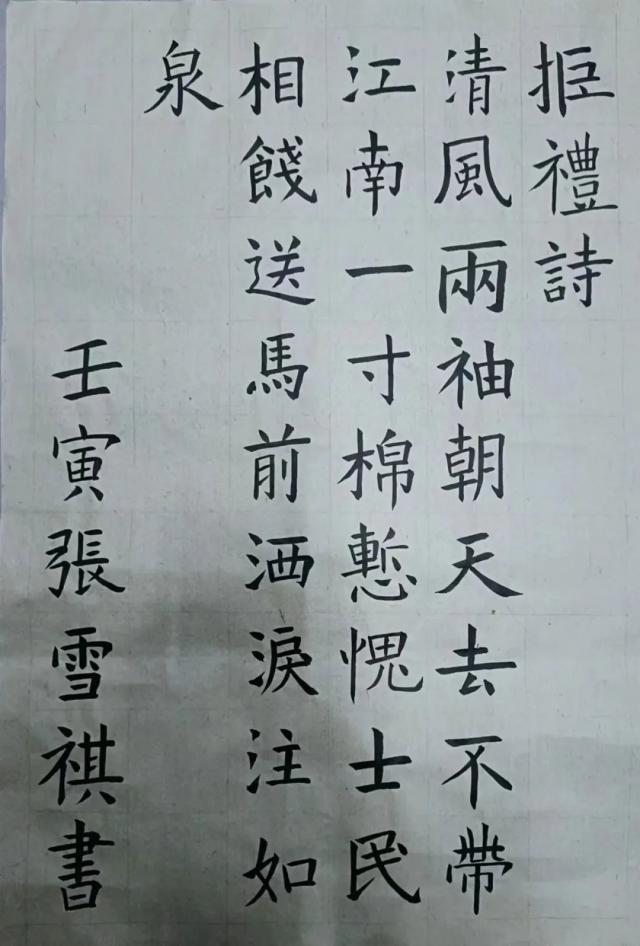 拒禮詩
清風兩袖朝天去不帶
江南一寸棉慙愧士民
相餞送馬前洒淚注如
泉
壬寅張雪祺書